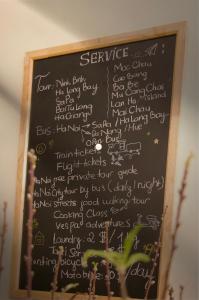 SERVICE
Tour: Ninh Binh
Ha Long Bay
Sapa
Bai Tu Long
Ha Giang
Moc Chau
Cao Bang
Ba Be
Mu Cang Chai
Lan Ha Island
Mai Chau
Bus: Ha Noi Sapa / Ha Long Bay
Da Nang / Hue
Open Bus
Train tickets
Flight tickets
Ha Noi private tour guide
Ha Noi City tour by bus (daily / night)
Ha Noi street food walking tour
Cooking Class
Vespa adventures
Laundry: 2 $ /
bicycle
Motorbike /day